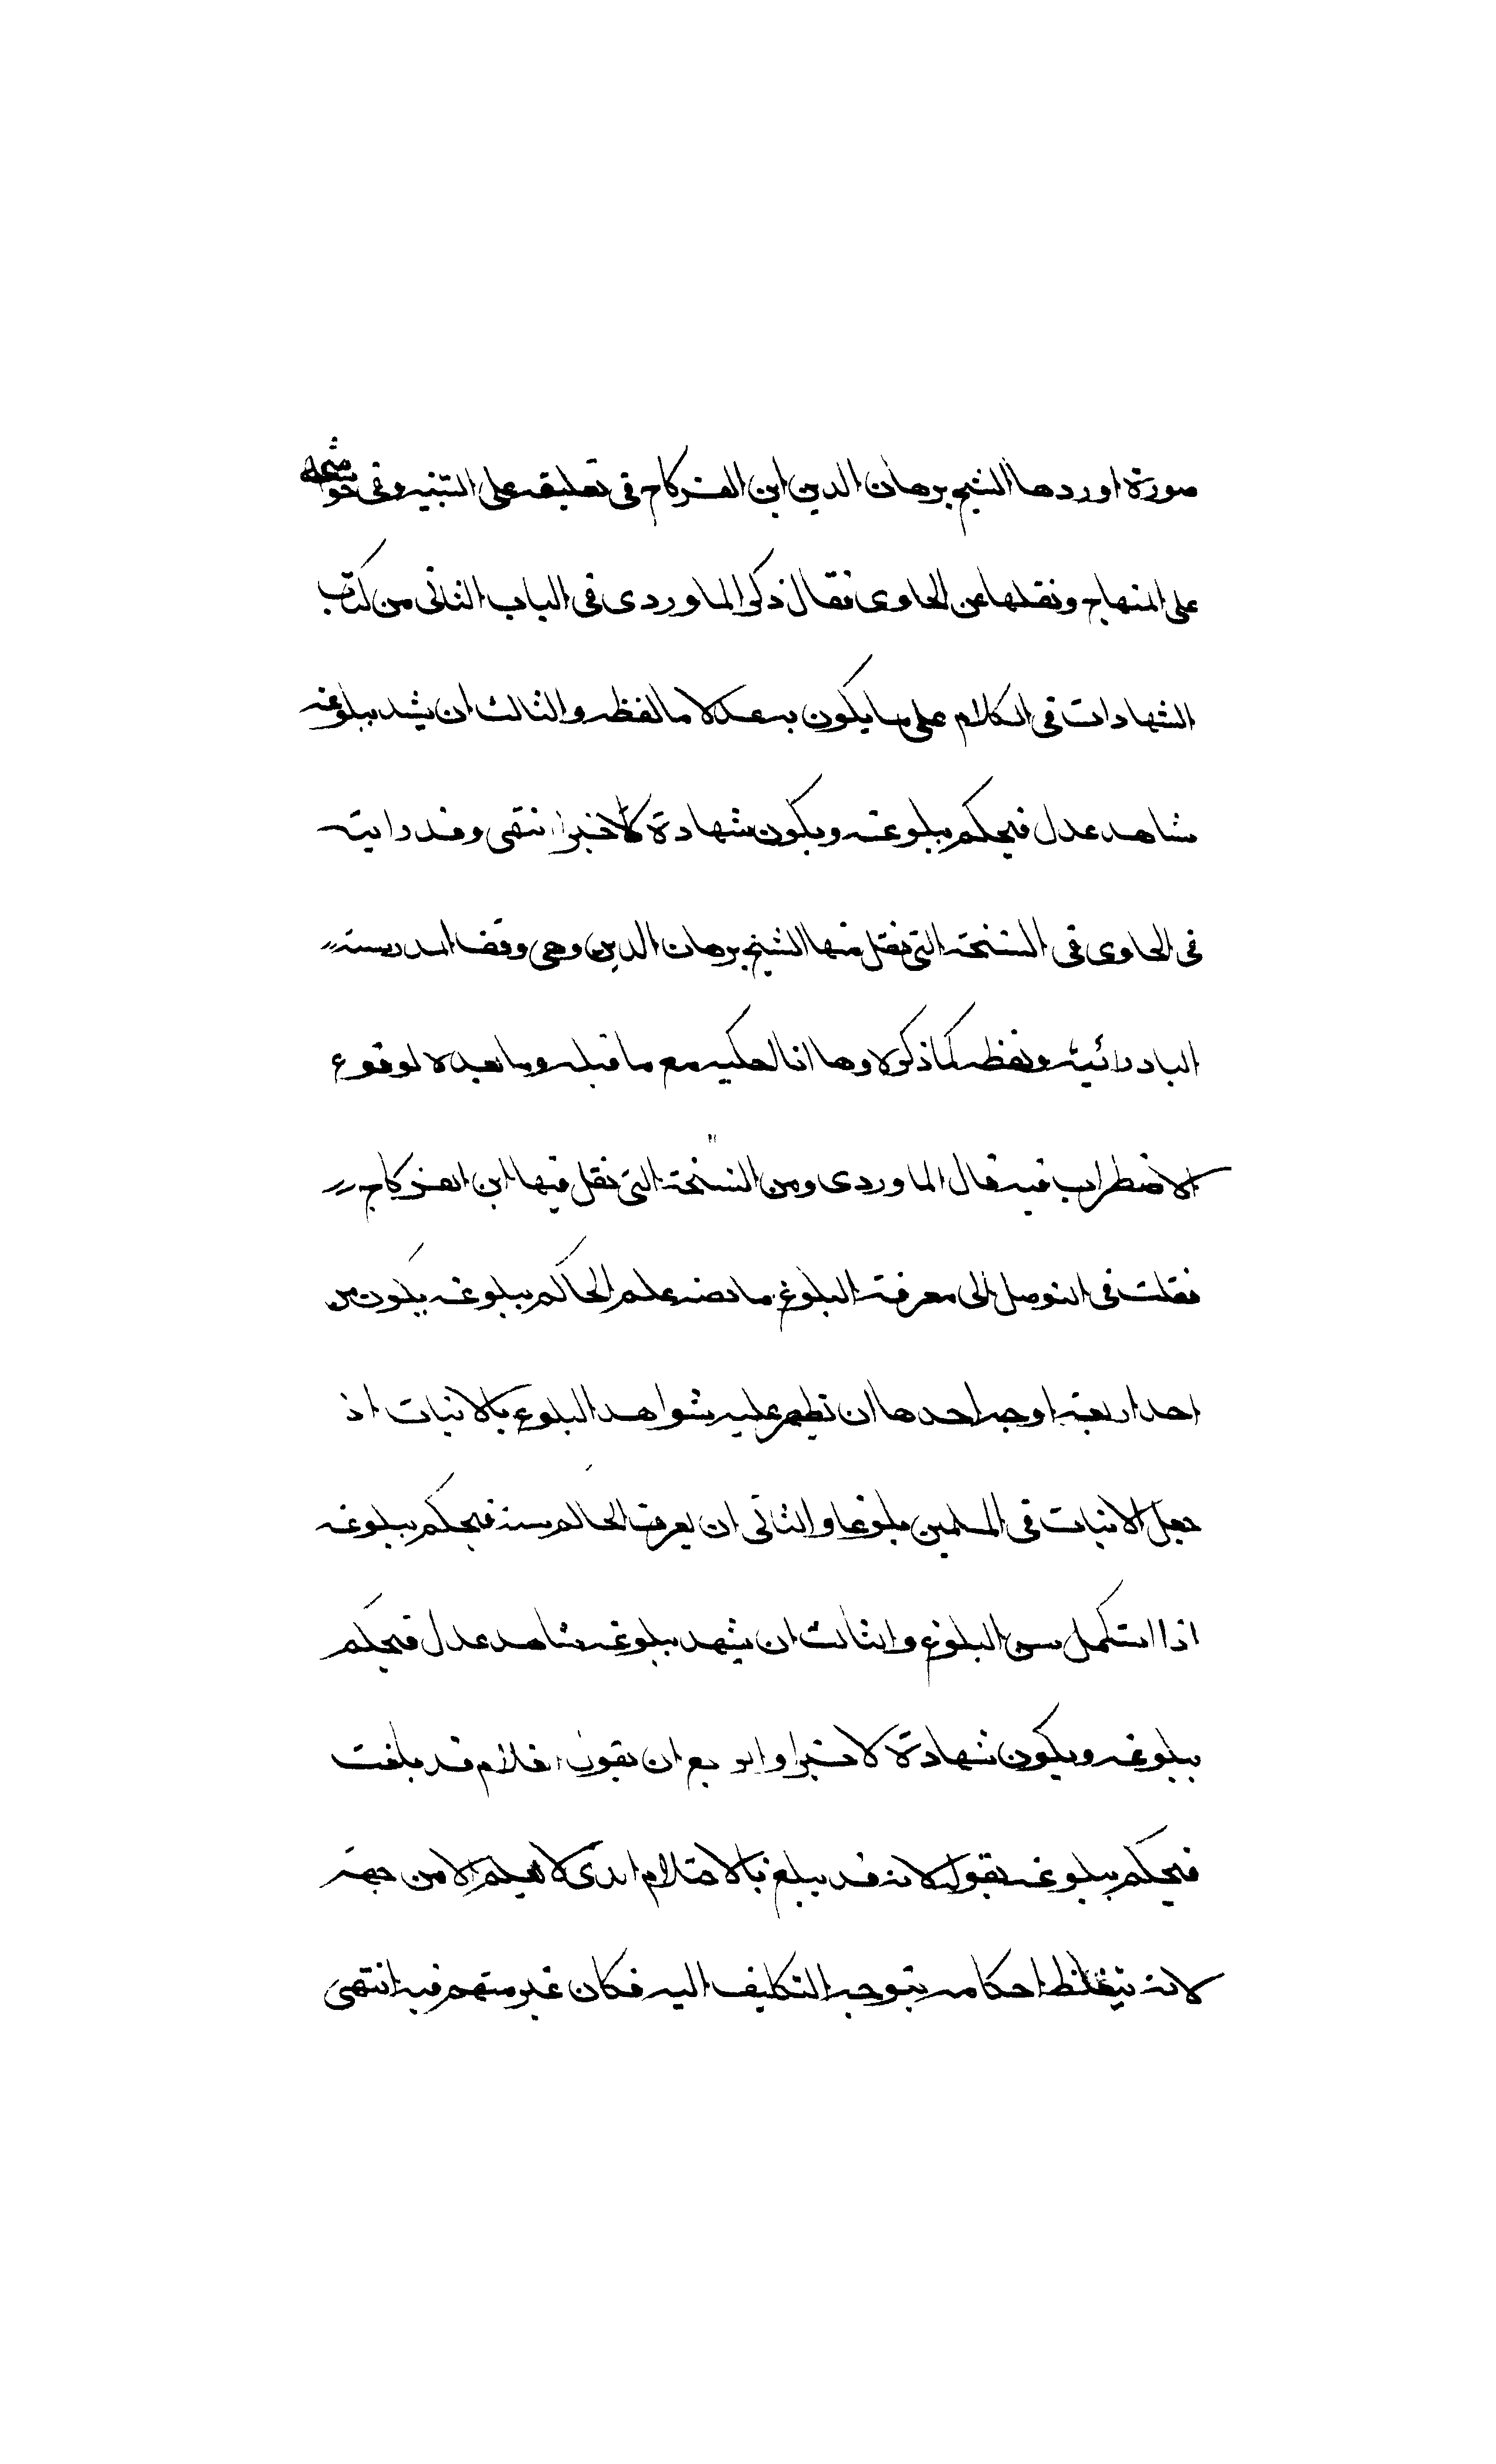 صورة اوردها الشيخ برهان الدين ابن الفركاح في تعليقه على التنبيه وفي حواشيه
على المنهاج ونقلها عن الحاوى فقال ذكر الماوردى في الباب الثانى من كتاب
الشهادات في الكلام على ما يكون به عدلا ما لفظه والثالث ان يشهد ببلوغه
شاهد عدل فيحكم ببلوغه ويكون شهادة لا خبرا انتهى وقد رايته
في الحاوى في النسخة التى نقل منها الشيخ برهان الدين وهي وقف المدرسة
البادرائية ولفظه كما ذكره وها انا احكيه مع ما قبله وما بعده لوقوع
الاضطراب فيه قال الماوردى ومن النسخة التى نقل منها ابن الفركاح
نقلت في التوصل الى معرفة البلوغ ما نصه علم الحاكم ببلوغه يكون من
احد اربعة اوجه احدها ان تظهر عليه شواهد البلوغ بالانبات اذ
جعل الانبات في المسلمين بلوغا والثانى ان يعرف الحاكم سنه فيحكم ببلوغه
اذا استكمل سن البلوغ والثالث ان يشهد ببلوغه شاهد عدل فيحكم
ببلوغه ويكون شهادة لا خبرا والرابع ان يقول الغلام قد بلغت
فيحكم ببلوغه بقوله لانه قد يبلغ بالاحتلام الذى لا يعلم الا من جهته
لانه تتغلظ احكامه بتوجه التكليف اليه فكان غير متهم فيه انتهى